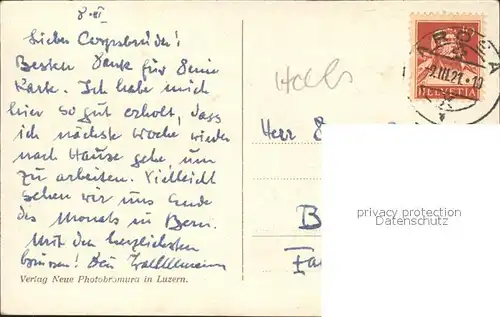 8. III
Lieber Corpsbruder!
Besten Dank für Deine
Karte. Ich habe mich
hier so gut erholt, dass
ich nächste Woche wieder
nach Hause gehe, um
zu arbeiten. Vielleicht
sehen wir uns Ende
des Monats in Bern.
Mit den herzlichsten
Grüssen! Dein
Verlag Neue Photobromura in Luzern.
AROSA
9.III.21.10
HELVETIA
Herr
B
privacy protection